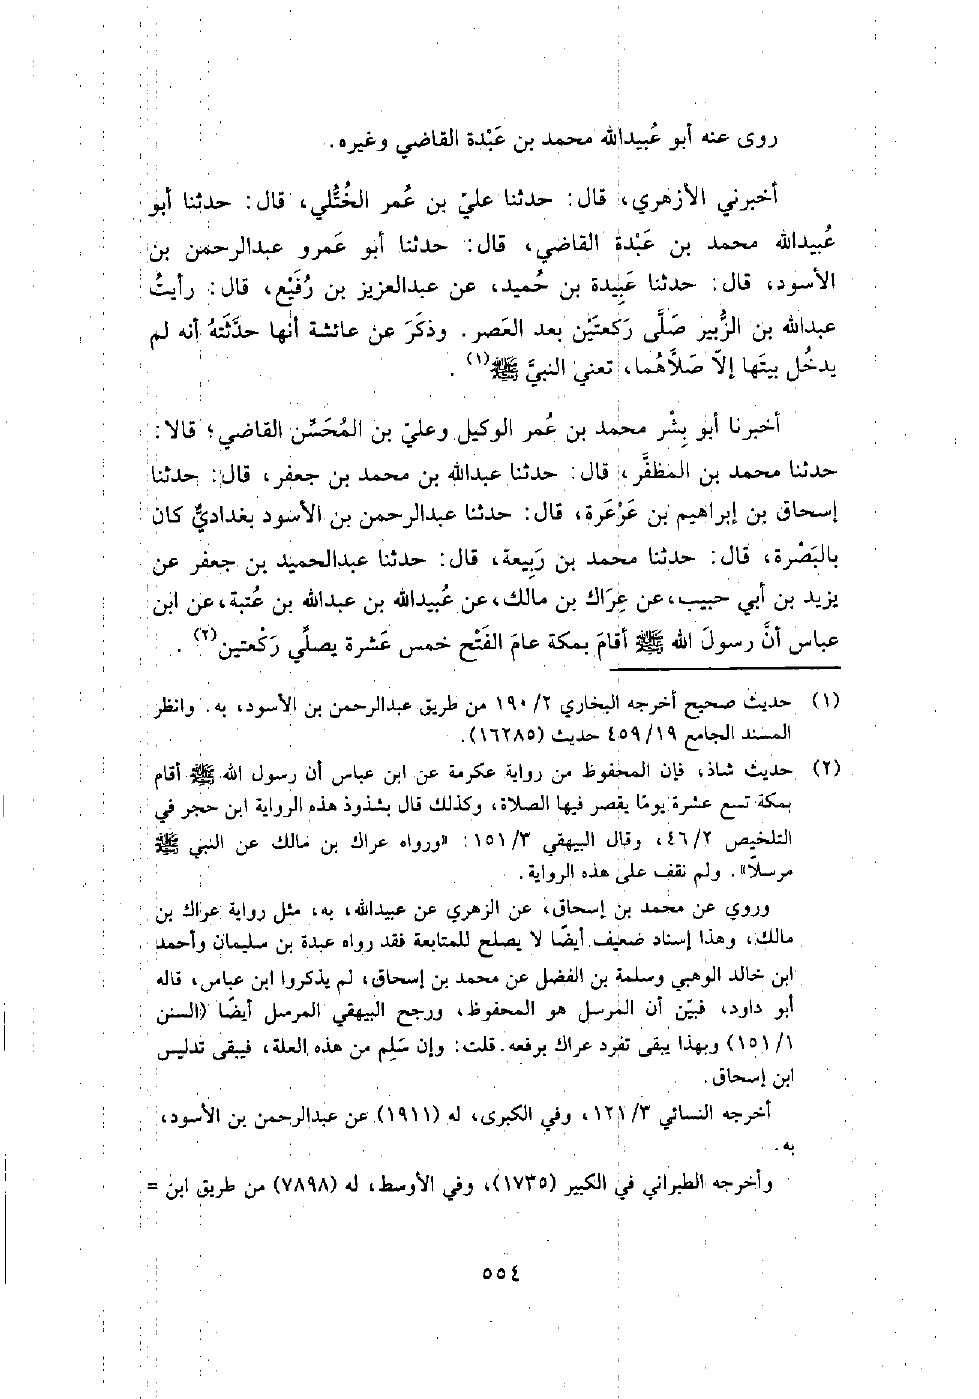 روى عنه أبو عُبيدالله محمد بن عَبْدة القاضي وغيره.
أخبرني الأزهري، قال: حدثنا عليّ بن عُمر الخُتُّلي، قال: حدثنا أبو
عُبيدالله محمد بن عَبْدة القاضي، قال: حدثنا أبو عَمرو عبدالرحمن بن
الأسود، قال: حدثنا عَبِيدة بن حُميد، عن عبدالعزيز بن رُفَيْع، قال: رأيتُ
عبدالله بن الزُّبير صَلَّى رَكعتَيْن بعد العَصر. وذكَرَ عن عائشة أنها حدَّثَتهُ أنه لم
يدخُل بيتَها إلاّ صَلاَّهُما، تعني النبيَّ ﷺ(١).
أخبرنا أبو بِشْر محمد بن عُمر الوكيل وعليّ بن المُحَسِّن القاضي؛ قالا:
حدثنا محمد بن المظفَّر، قال: حدثنا عبدالله بن محمد بن جعفر، قال: حدثنا
إسحاق بن إبراهيم بن عَرْعَرة، قال: حدثنا عبدالرحمن بن الأسود بغداديٌّ كان
بالبَصْرة، قال: حدثنا محمد بن رَبِيعة، قال: حدثنا عبدالحميد بن جعفر عن
يزيد بن أبي حبيب، عن عِرَاك بن مالك، عن عُبيدالله بن عبدالله بن عُتبة، عن ابن
عباس أنَّ رسولَ الله ﷺ أقامَ بمكة عامَ الفَتْح خمس عَشرة يصلِّي رَكْعتين(٢).
(١) حديث صحيح أخرجه البخاري ٢/ ١٩٠ من طريق عبدالرحمن بن الأسود، به. وانظر
المسند الجامع ١٩/ ٤٥٩ حديث (١٦٢٨٥).
(٢) حديث شاذ، فإن المحفوظ من رواية عكرمة عن ابن عباس أن رسول الله ﷺ أقام
بمكة تسع عشرة يومًا يقصر فيها الصلاة، وكذلك قال بشذوذ هذه الرواية ابن حجر في
التلخيص ٢/ ٤٦، وقال البيهقي ٣/ ١٥١: «ورواه عراك بن مالك عن النبي ﷺ
مرسلاً». ولم نقف على هذه الرواية.
وروي عن محمد بن إسحاق، عن الزهري عن عبيدالله، به، مثل رواية عراك بن
مالك، وهذا إسناد ضعيف أيضًا لا يصلح للمتابعة فقد رواه عبدة بن سليمان وأحمد
ابن خالد الوهبي وسلمة بن الفضل عن محمد بن إسحاق، لم يذكروا ابن عباس، قاله
أبو داود، فبيّن أن المرسل هو المحفوظ، ورجح البيهقي المرسل أيضًا (السنن
١/ ١٥١) وبهذا يبقى تفرد عراك برفعه. قلت: وإن سَلِم من هذه العلة، فيبقى تدليس
ابن إسحاق.
أخرجه النسائي ٣/ ١٢١، وفي الكبرى، له (١٩١١) عن عبدالرحمن بن الأسود،
به.
وأخرجه الطبراني في الكبير (١٧٣٥)، وفي الأوسط، له (٧٨٩٨) من طريق ابن =
٥٥٤